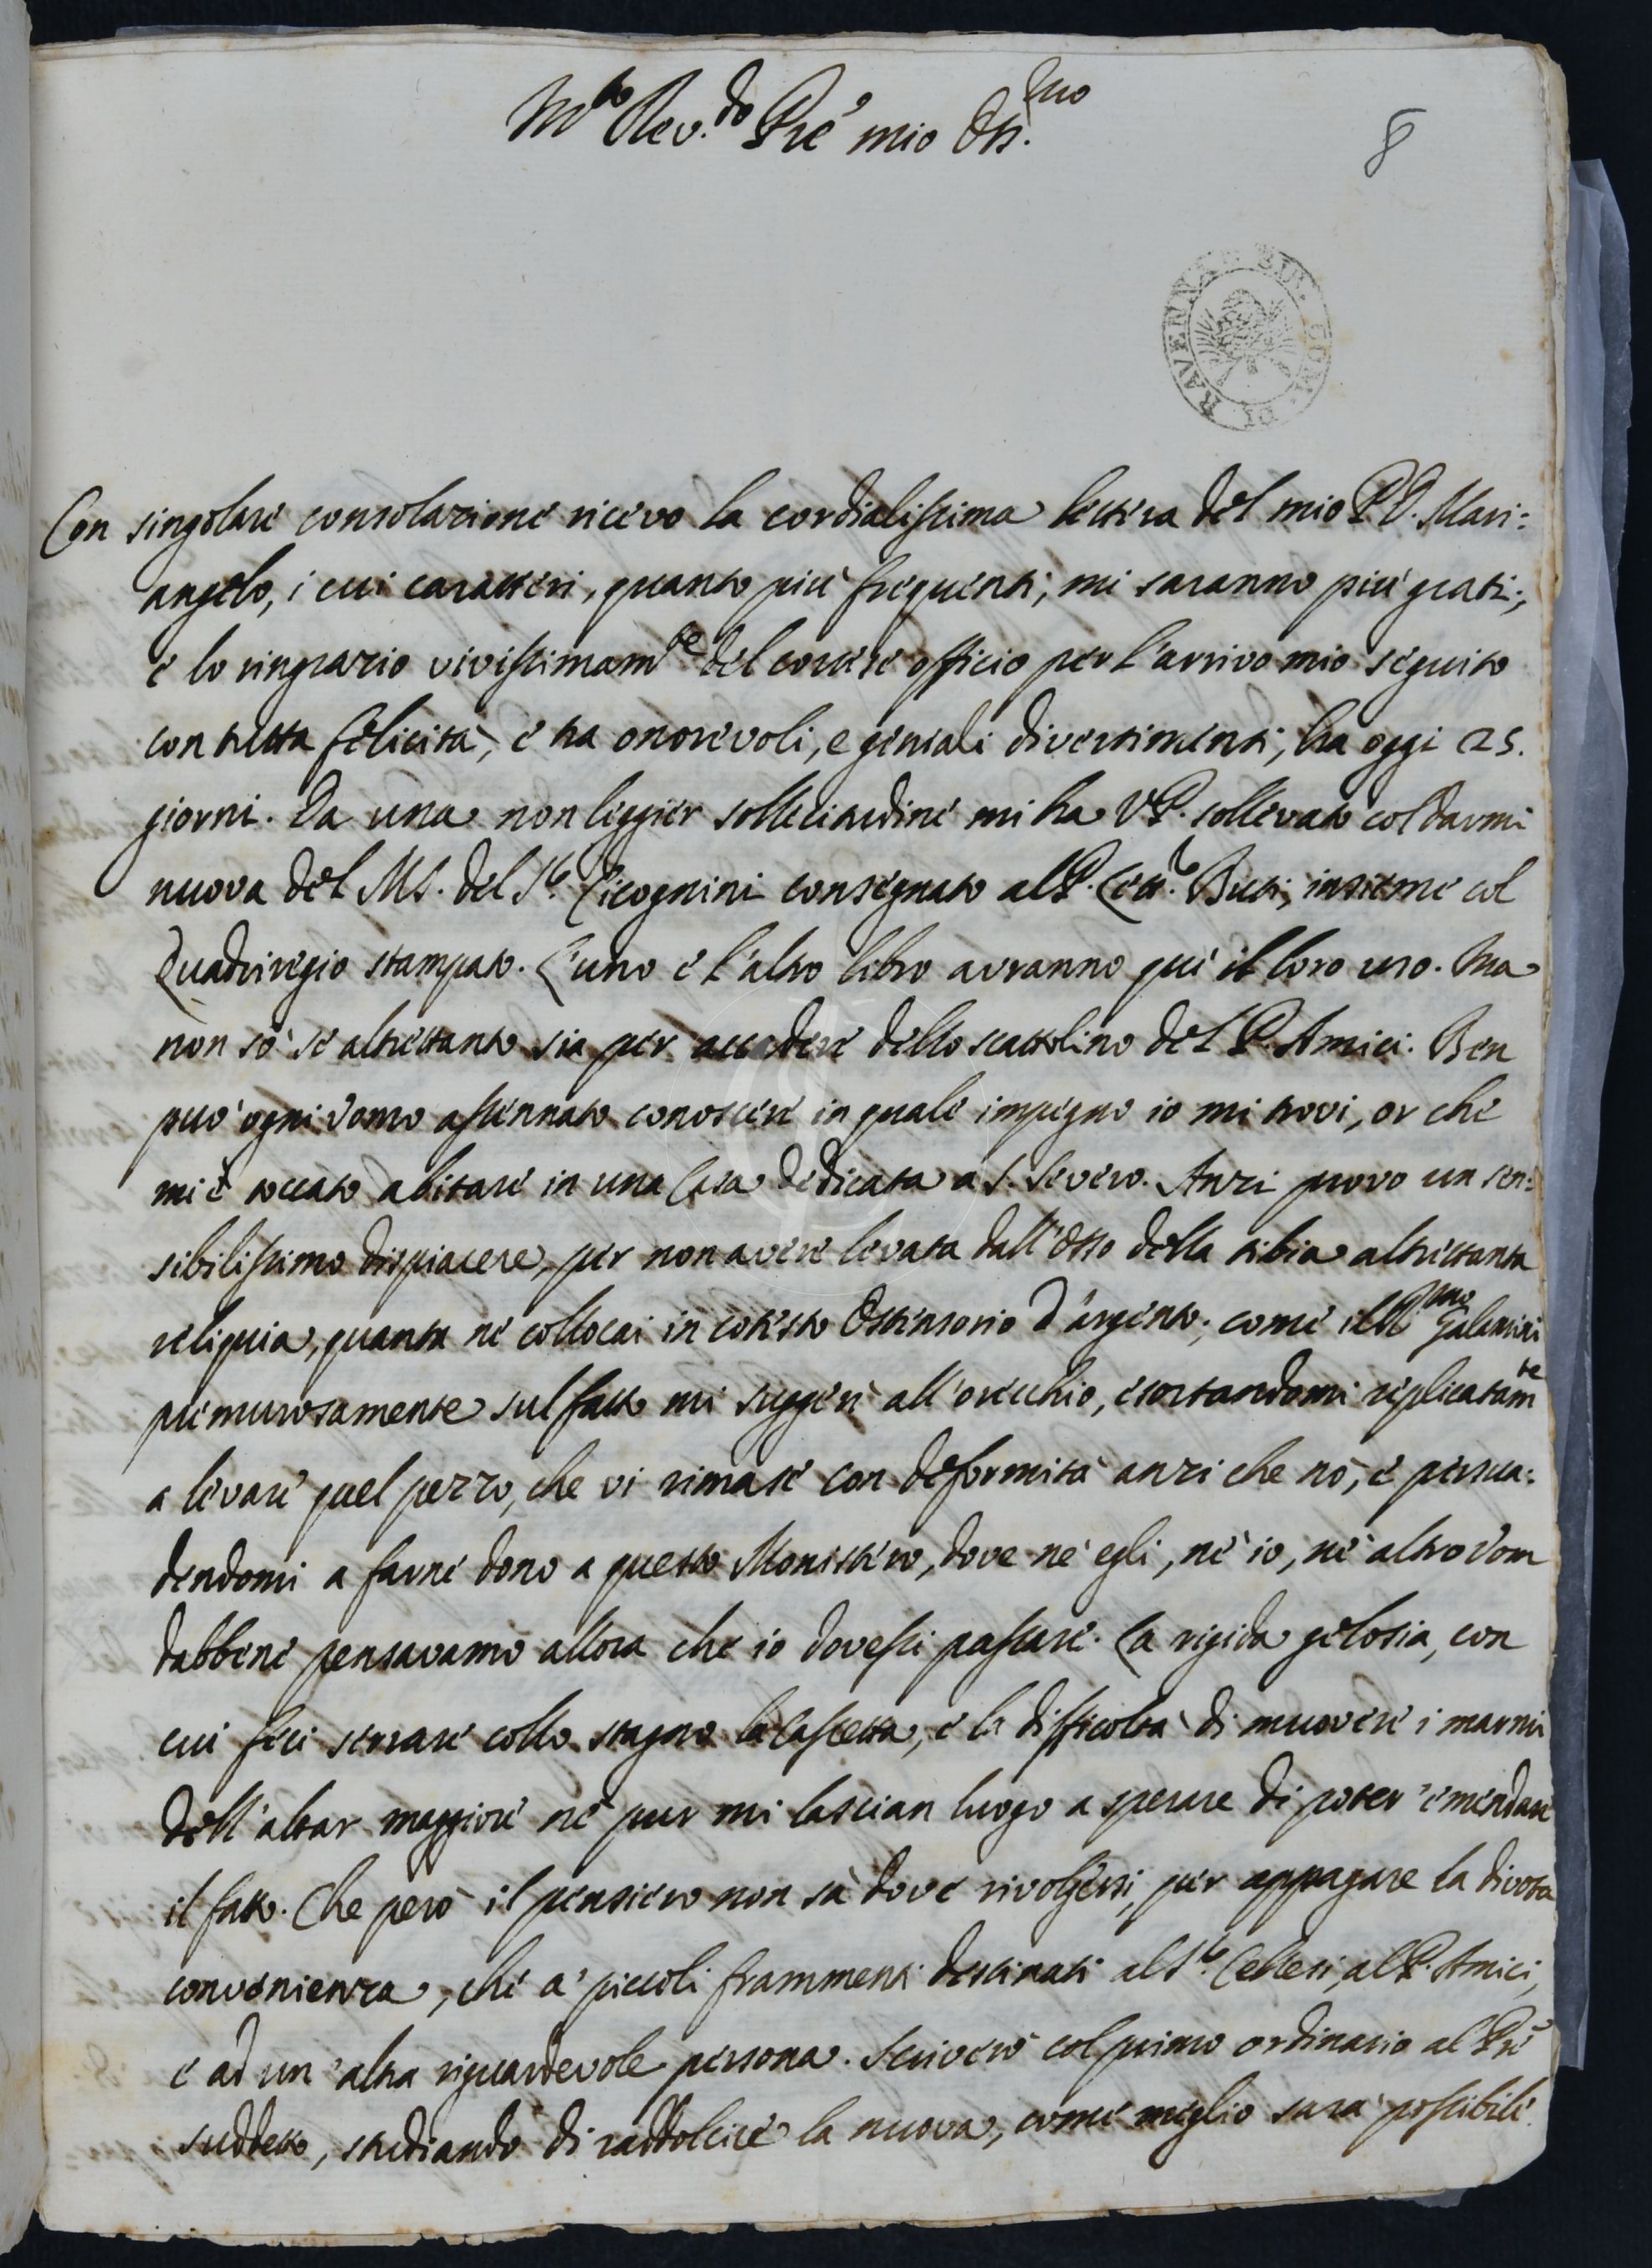 M.to Rev.do Pre mio Oss.mo
8
BIB. COM. DI RAVENNA
Con singolare consolazione ricevo la cordialissima lettera del mio P. D. Mari:
angelo, i cui caratteri, quanto più frequenti, mi saranno più grati;
e lo ringrazio vivissimam.te del cortese officio per l'arrivo mio seguito
con tutta felicità, e tra onorevoli, e geniali divertimenti, fra oggi 25.
giorni. Da una non leggier sollecitudine mi ha V. P. sollevato col darmi
nuova del MS. del S.r Cicognini consegnato al P. Buti, insieme col
Quadriregio stampato. L'uno e l'altro libro avranno qui il loro uso. Ma
non sò se altrettanto sia per accadere dello scattolino del P. Amici. Ben
può ogni uomo assennato conoscere in quale impegno io mi trovi, or che
mi è toccato abitare in una Casa dedicata a S. Severo. Anzi provo un sen:
sibilissimo dispiacere, per non avere levata dall'osso della tibia altrettanta
reliquia, quanta ne collocai in cotesto Ostensorio d'argento; come il
premurosamente sul fatto mi suggerì all'orecchio, esortandomi replicatam.te
a levare quel pezzo, che vi rimase con deformità anzi che nò, e persua:
dendomi a farne dono a questo Monistero, dove nè egli, nè io, nè altro uom
dabbene pensavamo allora che io dovessi passare. La rigida gelosia, con
cui feci serrare collo stagno la Cassetta, e la difficoltà di muovere i marmi
dell'altar maggiore nè pur mi lascian luogo a sperare di poter' emendare
il fatto. Che però il pensiero non sà dove rivolgersi, per appagare la divota
convenienza, che a' piccoli frammenti destinati al S.r Cellesi, al P. Amici,
e ad un' altra riguardevole persona. Scriverò col primo ordinario al Pre
suddetto, studiando di raddolcire la nuova, come meglio sarà possibile.